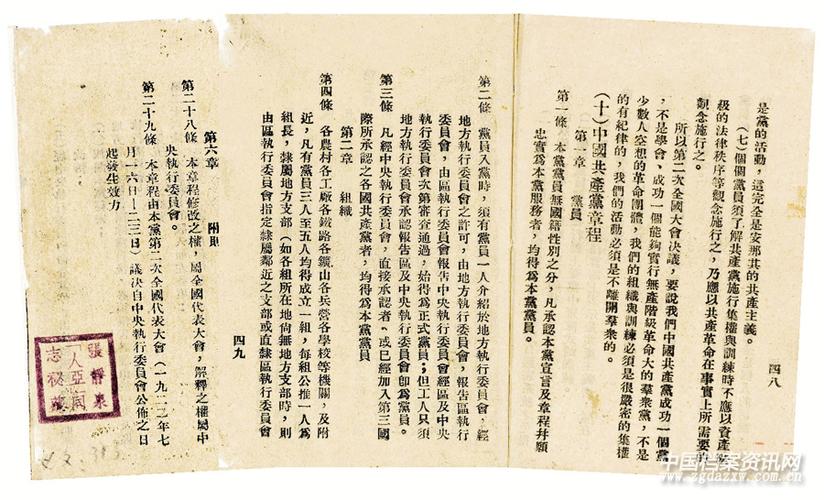 四八
是黨的活動，這完全是安那其的共產主義。
（七）個個黨員須了解共產黨施行集權與訓練時不應以資產
級的法律秩序等觀念施行之，乃應以共產革命在事實上所需要
觀念施行之。
所以第二次全國大會決議，要說我們中國共產黨成功一個黨
，不是學會、成功一個能夠實行無產階級革命大的羣衆黨，不是
少數人空想的革命團體，我們的組織與訓練必須是很嚴密的集權
的有紀律的，我們的活動必須是不離開羣衆的。
（十）中國共產黨章程
第一章　黨員
第一條　本黨黨員無國籍性別之分，凡承認本黨宣言及章程幷願
忠實爲本黨服務者，均得爲本黨黨員。
第二條　黨員入黨時，須有黨員一人介紹於地方執行委員會，經
地方執行委員會之許可，由地方執行委員會，報告區執行
委員會，由區執行委員會報告中央執行委員會經區及中央
執行委員會次第審查通過，始得爲正式黨員；但工人只須
地方執行委員會承認報告區及中央執行委員會卽爲黨員。
第三條　凡經中央執行委員會，直接承認者、或已經加入第三國
際所承認之各國共產黨者，均得爲本黨黨員
第二章　組織
第四條　各農村各工廠各鐵路各鑛山各兵營各學校等機關，及附
近，凡有黨員三人至五人均得成立一組，每組公推一人爲
組長，隸屬地方支部（如各組所在地尙無地方支部時，則
由區執行委員會指定隸屬鄰近之支部或直隸區執行委員會
四九
第六章　附則
第二十八條　本章程修改之權，屬全國代表大會，解釋之權屬中
央執行委員會。
第二十九條　本章程由本黨第二次全國代表大會（一九二二年七
月一六日—二三日）議決自中央執行委員會公佈之日
起發生效力
張靜泉
人亞同
志秘藏
中国档案资讯网
www.zgdazxw.com.cn